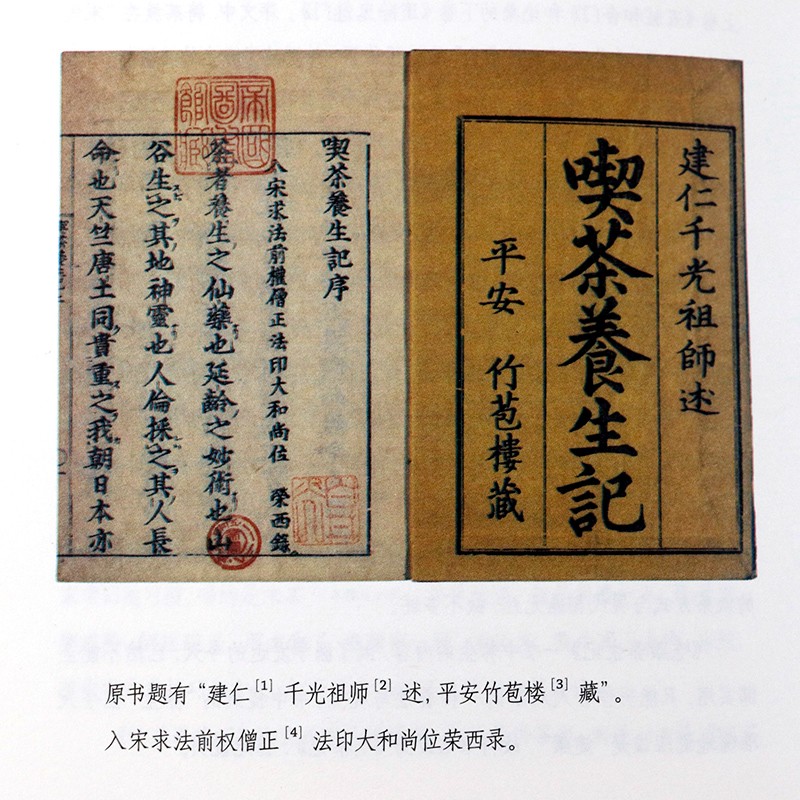 建仁千光祖師述
喫茶養生記
平安 竹苞樓藏
喫茶養生記序
入宋求法前權僧正法印大和尚位 榮西錄
茶者養生之仙藥也延齡之妙術也山
谷生之其地神靈也人倫採之其人長
命也天竺唐土同貴重之我朝日本亦
原书题有“建仁[1]千光祖师[2]述，平安竹苞楼[3]藏”。
入宋求法前权僧正[4]法印大和尚位荣西录。